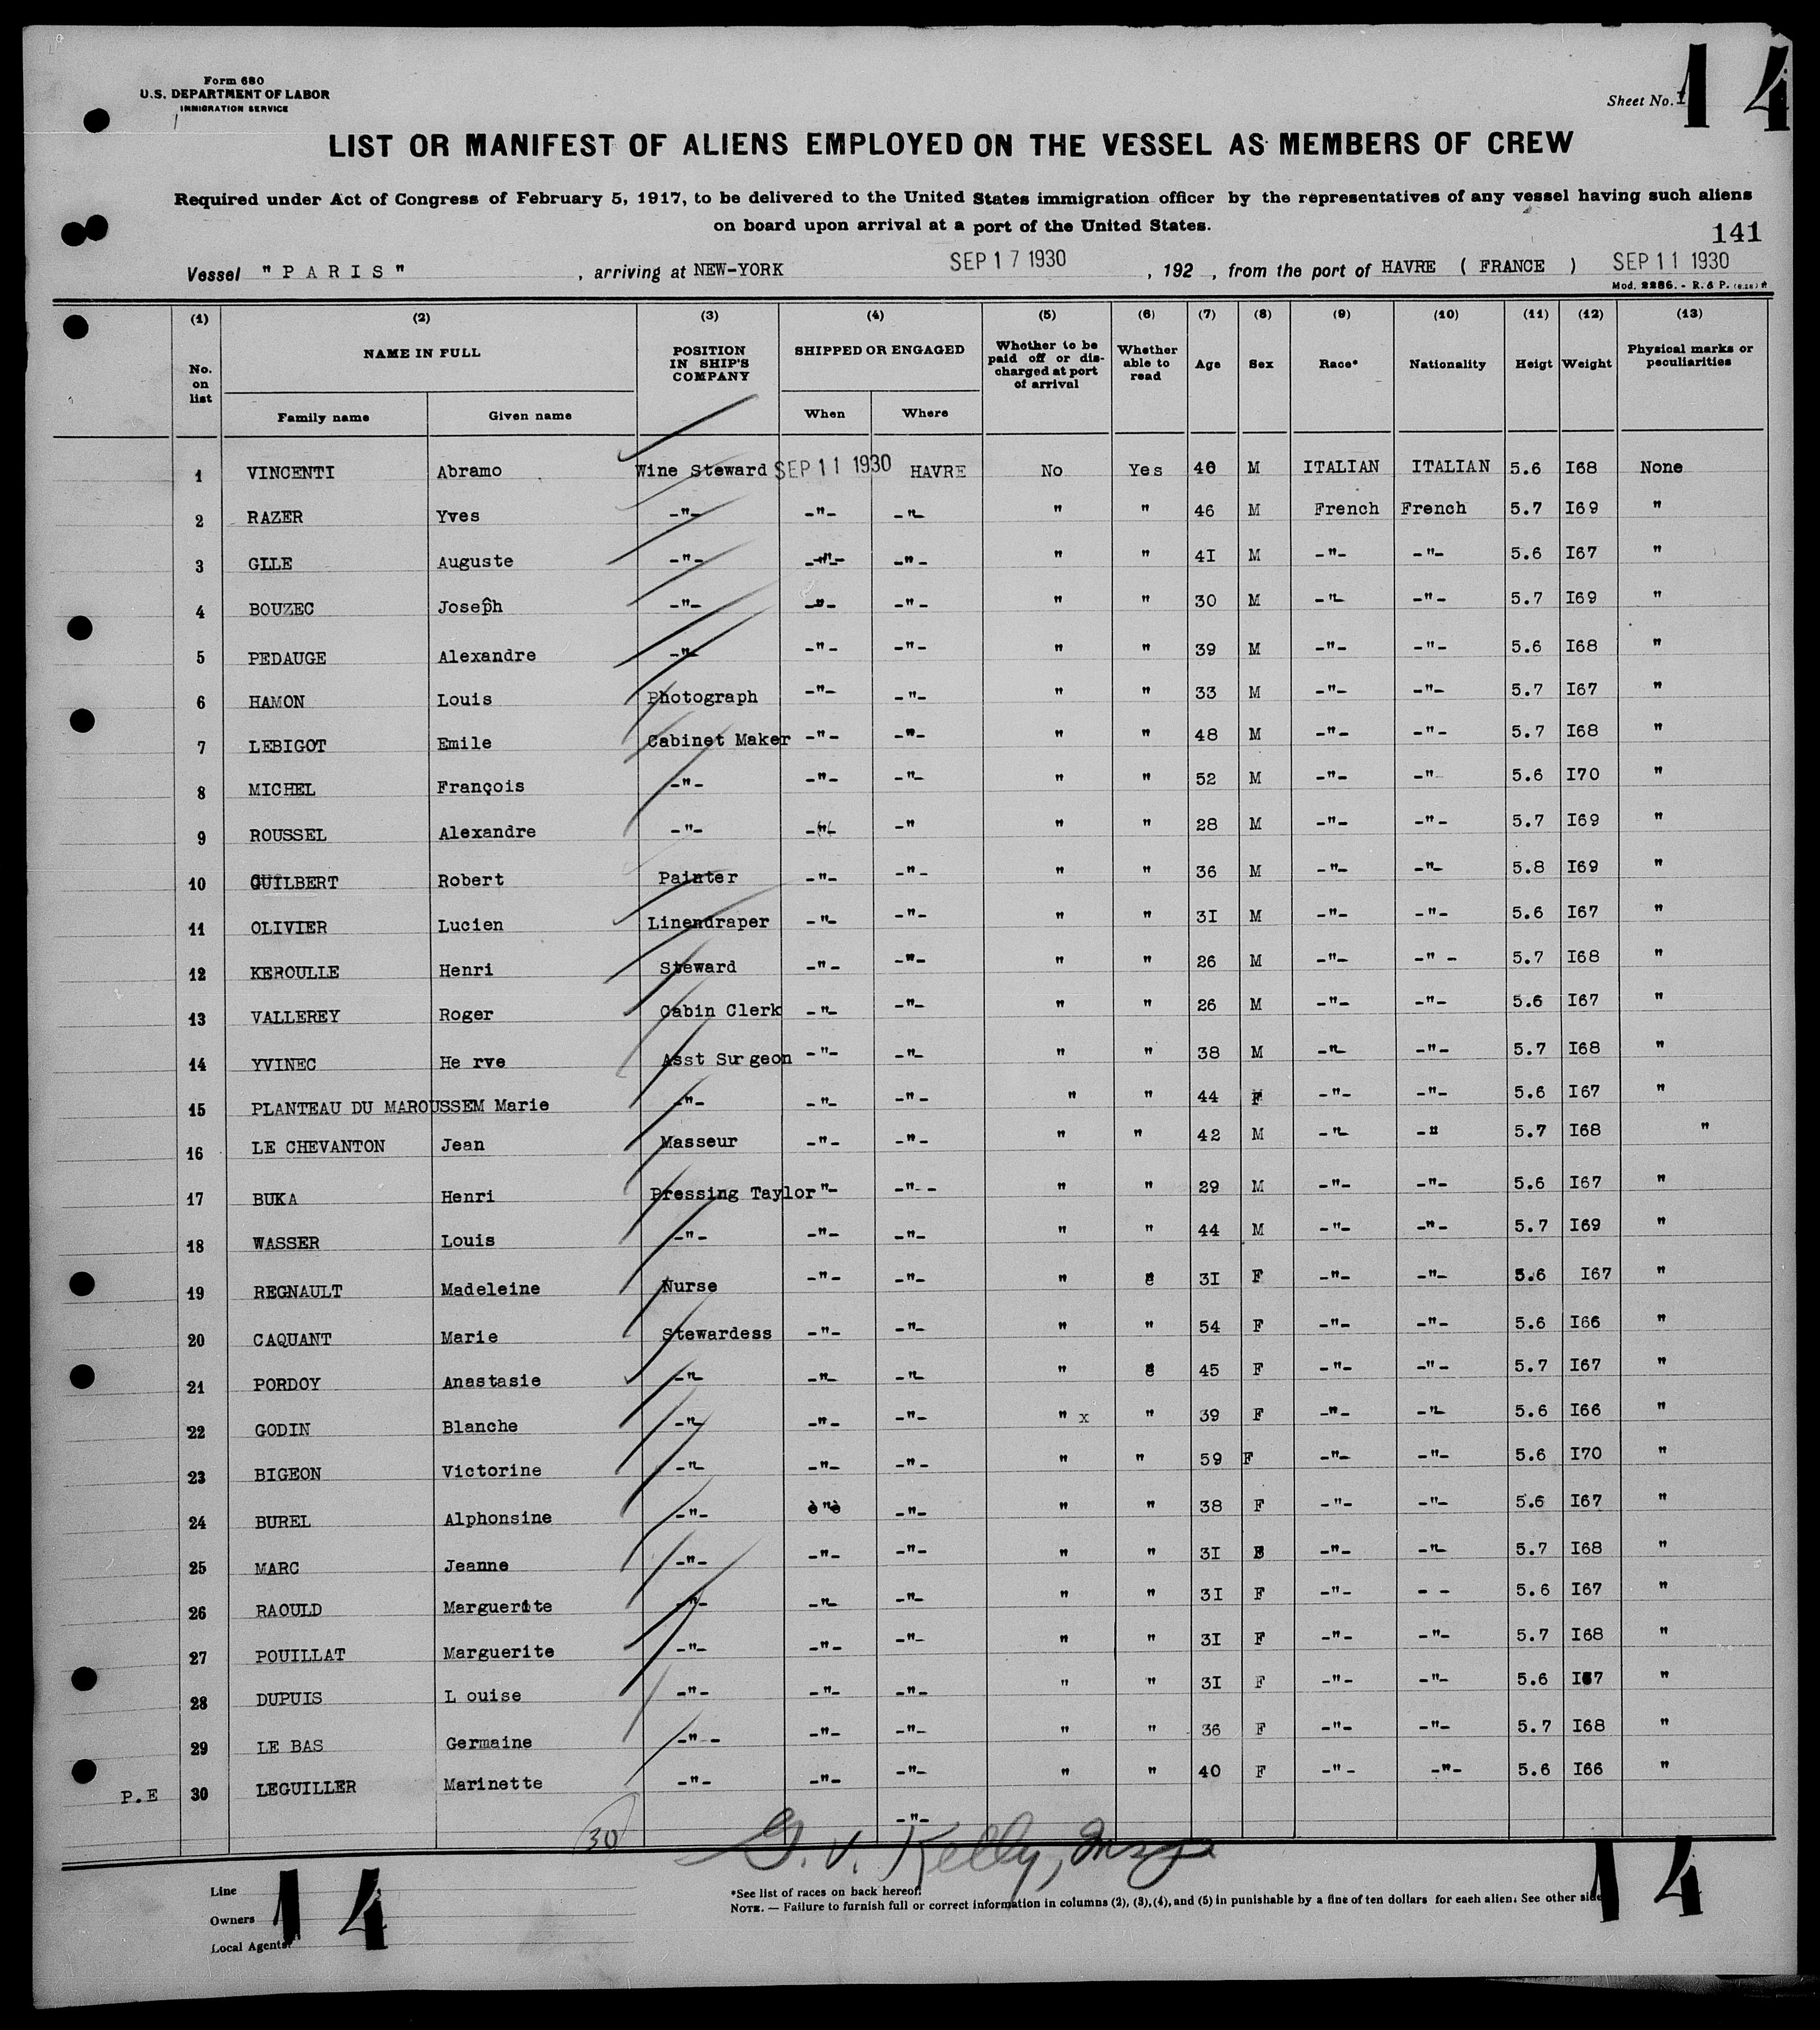 Form 680
U.S. DEPARTMENT OF LABOR
IMMIGRATION SERVICE
Sheet No. 14
LIST OR MANIFEST OF ALIENS EMPLOYED ON THE VESSEL AS MEMBERS OF CREW
Required under Act of Congress of February 5, 1917, to be delivered to the United States immigration officer by the representatives of any vessel having such aliens
on board upon arrival at a port of the United States.
141
Vessel "PARIS" , arriving at NEW-YORK SEP 17 1930 , 192 , from the port of HAVRE ( FRANCE ) SEP 11 1930
Mod. 2286. - R. & P. (6.28)
(1) (2) (3) (4) (5) (6) (7) (8) (9) (10) (11) (12) (13)
No. on list NAME IN FULL POSITION IN SHIP'S COMPANY SHIPPED OR ENGAGED Whether to be paid off or discharged at port of arrival Whether able to read Age Sex Race* Nationality Heigt Weight Physical marks or peculiarities
Family name Given name When Where
1 VINCENTI Abramo Wine Steward SEP 11 1930 HAVRE No Yes 40 M ITALIAN ITALIAN 5.6 I68 None
2 RAZER Yves -"- -"- -"- " " 46 M French French 5.7 I69 "
3 GLLE Auguste -"- -"- -"- " " 4I M -"- -"- 5.6 I67 "
4 BOUZEC Joseph -"- -"- -"- " " 30 M -"- -"- 5.7 I69 "
5 PEDAUGE Alexandre -"- -"- -"- " " 39 M -"- -"- 5.6 I68 "
6 HAMON Louis Photograph -"- -"- " " 33 M -"- -"- 5.7 I67 "
7 LEBIGOT Emile Cabinet Maker -"- -"- " " 48 M -"- -"- 5.7 I68 "
8 MICHEL François -"- -"- -"- " " 52 M -"- -"- 5.6 I70 "
9 ROUSSEL Alexandre -"- -"- -" " " 28 M -"- -"- 5.7 I69 "
10 GUILBERT Robert Painter -"- -"- " " 36 M -"- -"- 5.8 I69 "
11 OLIVIER Lucien Linendraper -"- -"- " " 3I M -"- -"- 5.6 I67 "
12 KEROULLE Henri Steward -"- -"- " " 26 M -"- -"- 5.7 I68 "
13 VALLEREY Roger Cabin Clerk -"- -"- " " 26 M -"- -"- 5.6 I67 "
14 YVINEC He rve Asst Sur geon -"- -"- " " 38 M -"- -"- 5.7 I68 "
15 PLANTEAU DU MAROUSSEM Marie -"- -"- -"- " " 44 F -"- -"- 5.6 I67 "
16 LE CHEVANTON Jean Masseur -"- -"- " " 42 M -"- -" 5.7 I68 "
17 BUKA Henri Pressing Taylor "- -"-- " " 29 M -"- -"- 5.6 I67 "
18 WASSER Louis -"- -"- -"- " " 44 M -"- -"- 5.7 I69 "
19 REGNAULT Madeleine Nurse -"- -"- " " 3I F -"- -"- 5.6 I67 "
20 CAQUANT Marie Stewardess -"- -"- " " 54 F -"- -"- 5.6 I66 "
21 PORDOY Anastasie -"- -"- -"- " " 45 F -"- -"- 5.7 I67 "
22 GODIN Blanche -"- -"- -"- " x " 39 F -"- -"- 5.6 I66 "
23 BIGEON Victorine -"- -"- -"- " " 59 F -"- -"- 5.6 I70 "
24 BUREL Alphonsine -"- è"è -"- " " 38 F -"- -"- 5.6 I67 "
25 MARC Jeanne -"- -"- -"- " " 3I F -"- -"- 5.7 I68 "
26 RAOULD Marguerite -"- -"- -"- " " 3I F -"- - - 5.6 I67 "
27 POUILLAT Marguerite -"- -"- -"- " " 3I F -"- -"- 5.7 I68 "
28 DUPUIS L ouise -"- -"- -"- " " 3I F -"- -"- 5.6 I67 "
29 LE BAS Germaine -"- - -"- -"- " " 36 F -"- -"- 5.7 I68 "
P.E 30 LEGUILLER Marinette -"- -"- -"- " " 40 F -"- -"- 5.6 I66 "
-"-
30 G. V. Kelly,
Line
Owners
Local Agents
14
*See list of races on back hereof.
NOTE. — Failure to furnish full or correct information in columns (2), (3), (4), and (5) in punishable by a fine of ten dollars for each alien. See other side
14